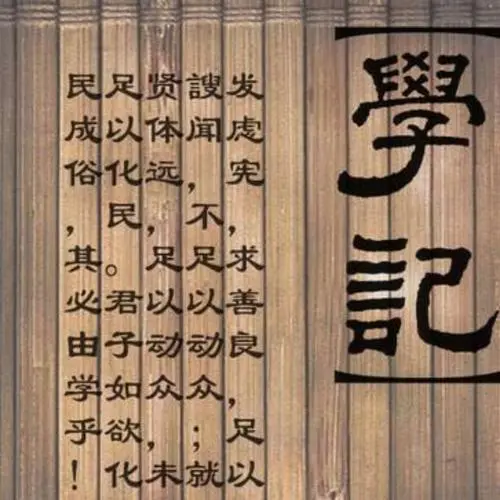 學記
发虑宪,求善良,足以
謏闻,不足以动众;就
贤体远,足以动众,未
足以化民。君子如欲化
民成俗,其必由学乎!